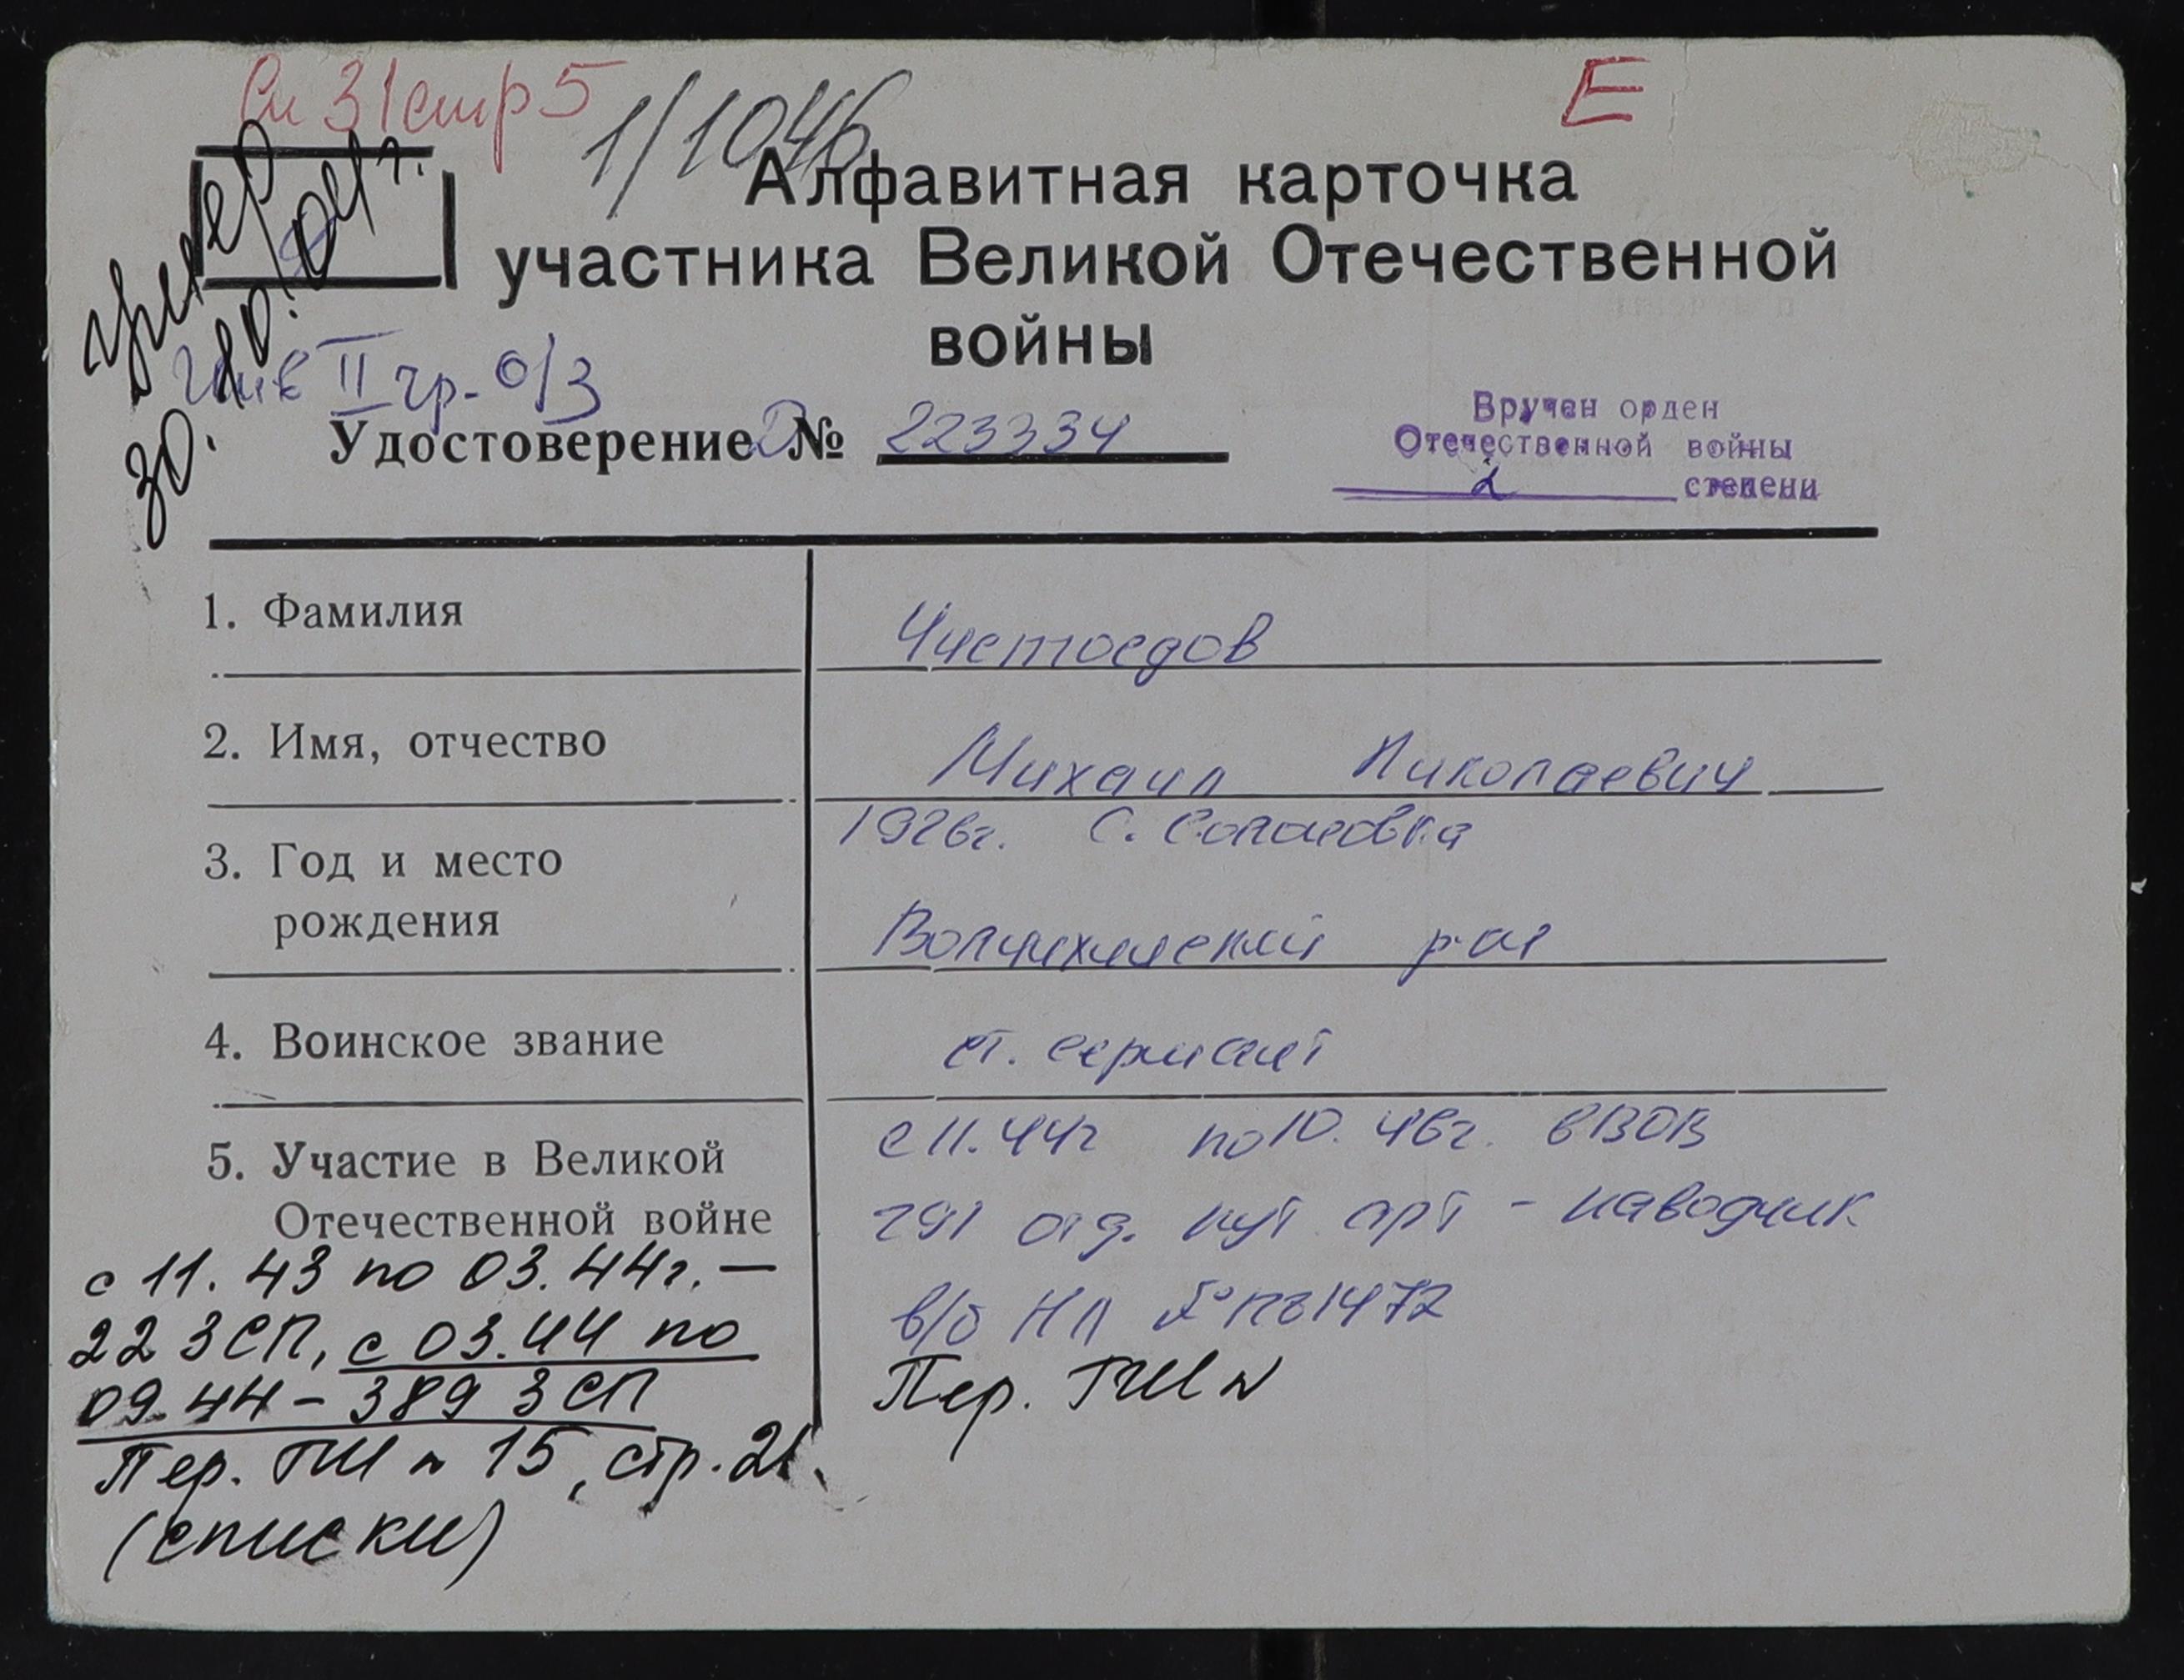 Сп 31 стр 5
1/1046
Е
Алфавитная карточка
участника Великой Отечественной
войны
умер
30.10.04 г.
Инв II гр. о/з
Удостоверение Д № 223334
Вручен орден
Отечественной войны
2 степени
1. Фамилия
Чистоедов
2. Имя, отчество
Михаил Николаевич
3. Год и место
рождения
1926г. с.
Волчихинский р-он
4. Воинское звание
ст. сержант
5. Участие в Великой
Отечественной войне
с 11.44г по 10.46г. в ВОВ
291 отд. арт - наводчик
в/б НП № 1472
Пер. ГШ №
с 11.43 по 03.44г. —
22 ЗСП, с 03.44 по
09.44 - 389 ЗСП
Пер. ГШ № 15, стр. 21.
(списки)